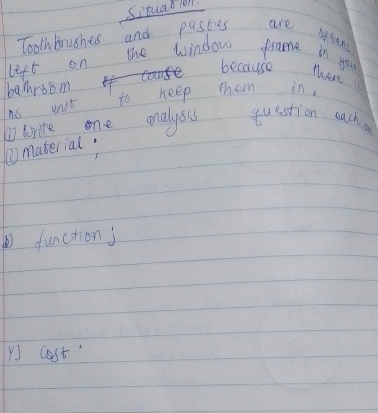 Situation
Toothbrushes and pastes are
left on the window frame in your
bathroom of couse because there is
no unit to keep them in.
i) write one analysis question each
a) material;
b) function;
c) cost.